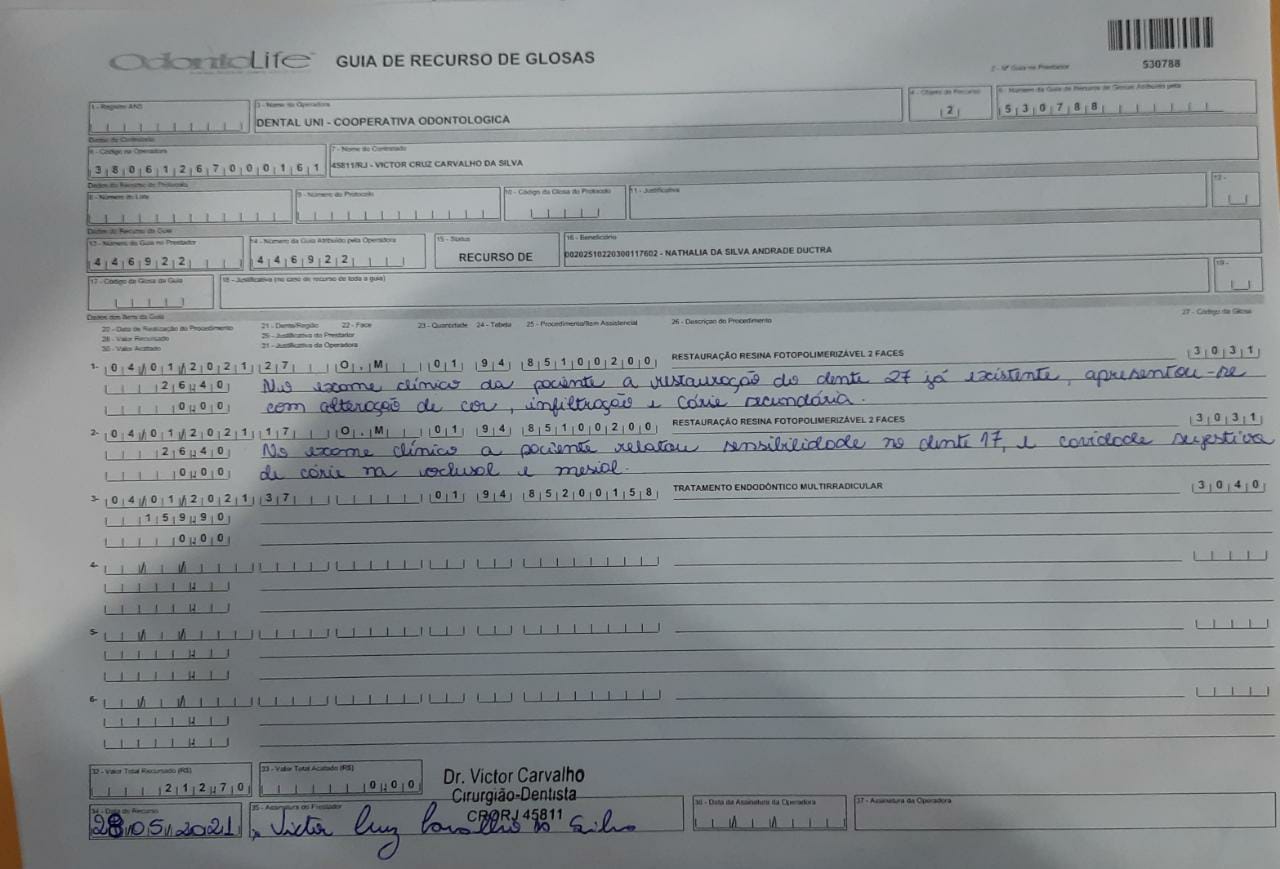 OdontoLife GUIA DE RECURSO DE GLOSAS
2 - Nº Guia no Prestador 530788
1 - Registro ANS
3 - Nome da Operadora
DENTAL UNI - COOPERATIVA ODONTOLOGICA
4 - Objeto do Recurso
2
5 - Número da Guia de Recurso de Glosas Atribuído pela
530788
Dados do Contratado
6 - Código na Operadora
38061267000161
7 - Nome do Contratado
45811/RJ - VICTOR CRUZ CARVALHO DA SILVA
Dados do Recurso do Protocolo
8 - Número do Lote
9 - Número do Protocolo
10 - Código da Glosa do Protocolo
11 - Justificativa
12 -
Dados do Recurso da Guia
13 - Número da Guia no Prestador
446922
14 - Número da Guia Atribuído pela Operadora
446922
15 - Status
RECURSO DE
16 - Beneficiário
00202510220300117602 - NATHALIA DA SILVA ANDRADE DUCTRA
17 - Código da Glosa da Guia
18 - Justificativa (no caso de recurso de toda a guia)
19 -
Dados dos Itens da Guia
20 - Data de Realização do Procedimento 21 - Dente/Região 22 - Face 23 - Quantidade 24 - Tabela 25 - Procedimento/Item Assistencial 26 - Descrição do Procedimento 27 - Código da Glosa
28 - Valor Recursado 29 - Justificativa do Prestador
30 - Valor Acatado 31 - Justificativa da Operadora
1- 04/01/2021 27 O,M 01 94 85100200 RESTAURAÇÃO RESINA FOTOPOLIMERIZÁVEL 2 FACES 3031
26,40 No exame clínico da paciente a restauração do dente 27 já existente, apresentou-se
0,00 com alteração de cor, infiltração e cárie secundária.
2- 04/01/2021 17 O,M 01 94 85100200 RESTAURAÇÃO RESINA FOTOPOLIMERIZÁVEL 2 FACES 3031
26,40 No exame clínico a paciente relatou sensibilidade no dente 17, e cavidade sugestiva
0,00 de cárie na oclusal e mesial.
3- 04/01/2021 37 01 94 85200158 TRATAMENTO ENDODÔNTICO MULTIRRADICULAR 3040
159,90
0,00
4-
5-
6-
32 - Valor Total Recursado (R$)
212,70
33 - Valor Total Acatado (R$)
0,00
Dr. Victor Carvalho
Cirurgião-Dentista
CRORJ 45811
34 - Data do Recurso
28/05/2021
35 - Assinatura do Prestador
Victor Cruz Carvalho da Silva
36 - Data da Assinatura da Operadora
37 - Assinatura da Operadora